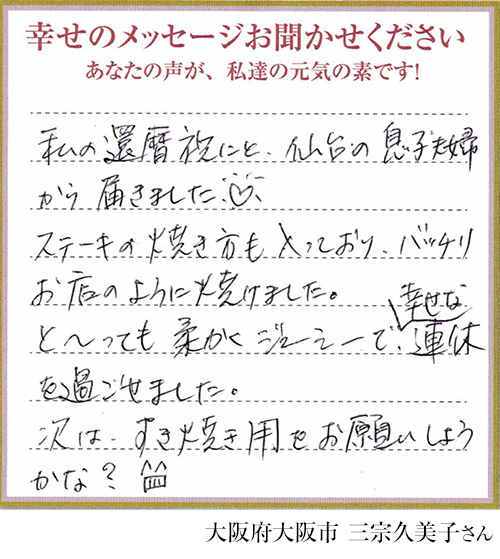 幸せのメッセージお聞かせください
あなたの声が、私達の元気の素です!
私の還暦祝にと、仙台の息子夫婦
から届きました♡
ステーキの焼き方も入っており、バッチリ
お店のように焼けました。
と〜っても柔かくジューシーで、幸せな連休
を過ごせました。
次は、すき焼き用をお願いしよう
かな?
大阪府大阪市 三宗久美子さん